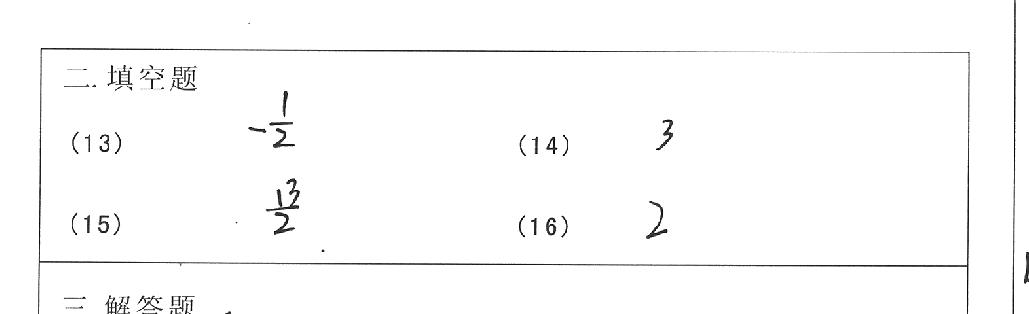 二. 填空题
(13) -1/2 (14) 3
(15) 13/2 (16) 2
三 解答题